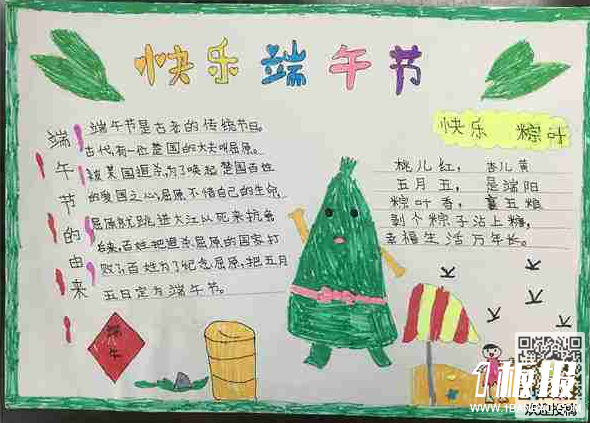 快乐端午节
端午节的由来
端午节是古老的传统节日。
古代,有一位楚国的大夫叫屈原。
被某国追杀,为了唤起楚国百姓
的爱国之心,屈原不惜自己的生命,
屈原就跳进大江以死来抗争
后来,百姓把追杀屈原的国家打
败了,百姓为了纪念屈原,把五月
五日定为端午节。
快乐 粽叶
桃儿红,杏儿黄
五月五,是端阳
粽叶香,裹五粮
剥个粽子沾上糖,
幸福生活万年长。
端午
1板报
WWW.1BANBAO.COM
欢迎投稿